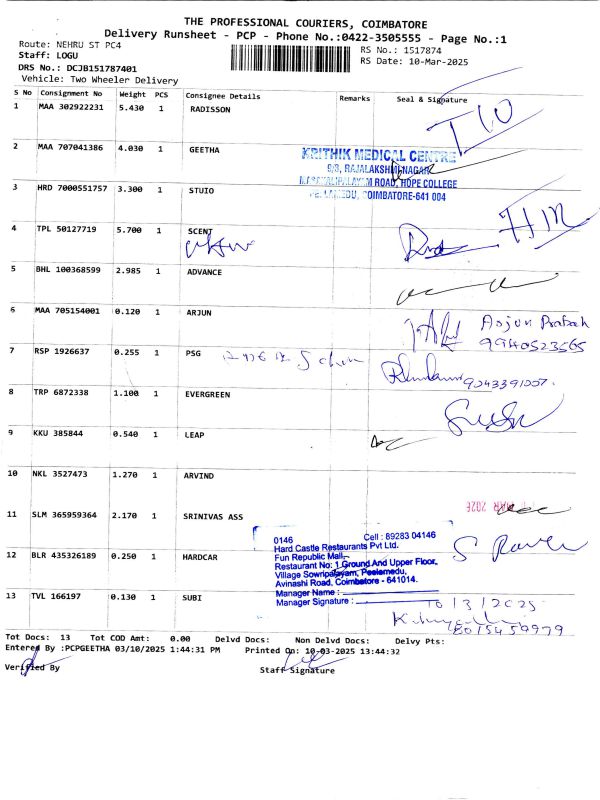 THE PROFESSIONAL COURIERS, COIMBATORE
Delivery Runsheet - PCP - Phone No.:0422-3505555 - Page No.:1
Route: NEHRU ST PC4
RS No.: 1517874
Staff: LOGU
RS Date: 10-Mar-2025
DRS No.: DCJB151787401
Vehicle: Two Wheeler Delivery
S No Consignment No Weight PCS Consignee Details Remarks Seal & Signature
1 MAA 302922231 5.430 1 RADISSON
2 MAA 707041386 4.030 1 GEETHA
KRITHIK MEDICAL CENTRE
9/3, RAJALAKSHMI NAGAR
MASAKALIPALAYAM ROAD, HOPE COLLEGE
PEELAMEDU, COIMBATORE-641 004
3 HRD 7000551757 3.300 1 STUIO
4 TPL 50127719 5.700 1 SCENT
5 BHL 100368599 2.985 1 ADVANCE
6 MAA 705154001 0.120 1 ARJUN
Arjun Prabah
9940523565
7 RSP 1926637 0.255 1 PSG
9043391007
8 TRP 6872338 1.100 1 EVERGREEN
9 KKU 385844 0.540 1 LEAP
10 NKL 3527473 1.270 1 ARVIND
11 SLM 365959364 2.170 1 SRINIVAS ASS
0146 Cell : 89283 04146
Hard Castle Restaurants Pvt Ltd.
Fun Republic Mall,
Restaurant No: 1,Ground And Upper Floor,
Village Sowripalayam, Peelamedu,
Avinashi Road, Coimbatore - 641014.
Manager Name :
Manager Signature :
12 BLR 435326189 0.250 1 HARDCAR
13 TVL 166197 0.130 1 SUBI
10/3/2025
8015459979
Tot Docs: 13 Tot COD Amt: 0.00 Delvd Docs: Non Delvd Docs: Delvy Pts:
Entered By :PCPGEETHA 03/10/2025 1:44:31 PM Printed On: 10-03-2025 13:44:32
Verified By Staff Signature